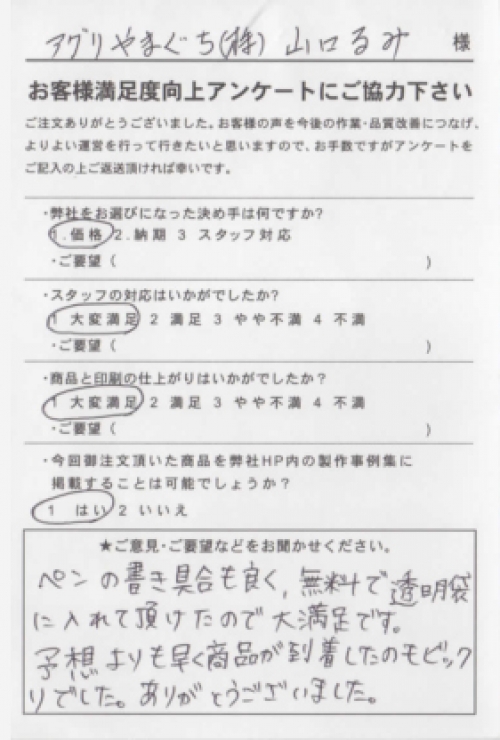 アグリやまぐち(株) 山口るみ 様
お客様満足度向上アンケートにご協力下さい
ご注文ありがとうございました。お客様の声を今後の作業・品質改善につなげ、
よりよい運営を行って行きたいと思いますので、お手数ですがアンケートを
ご記入の上ご返送頂ければ幸いです。
・弊社をお選びになった決め手は何ですか?
1.価格 2.納期 3 スタッフ対応
・ご要望( )
・スタッフの対応はいかがでしたか?
1 大変満足 2 満足 3 やや不満 4 不満
・ご要望( )
・商品と印刷の仕上がりはいかがでしたか?
1 大変満足 2 満足 3 やや不満 4 不満
・ご要望( )
・今回御注文頂いた商品を弊社HP内の製作事例集に
掲載することは可能でしょうか?
1 はい 2 いいえ
★ご意見・ご要望などをお聞かせください。
ペンの書き具合も良く、無料で透明袋
に入れて頂けたので大満足です。
予想よりも早く商品が到着したのもビック
リでした。ありがとうございました。